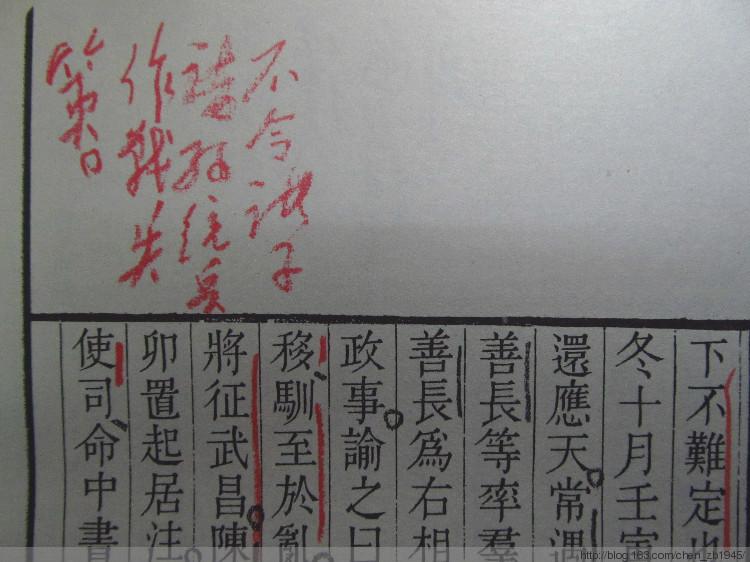 不令诸子
诸孙统兵
作战失
策
下不難定也
冬十月壬寅
還應天常遇
善長等率羣
善長為右相
政事諭之曰
移馴至於亂
將征武昌陳
卯置起居注
使司命中書
http://blog.163.com/chen_zb1945/